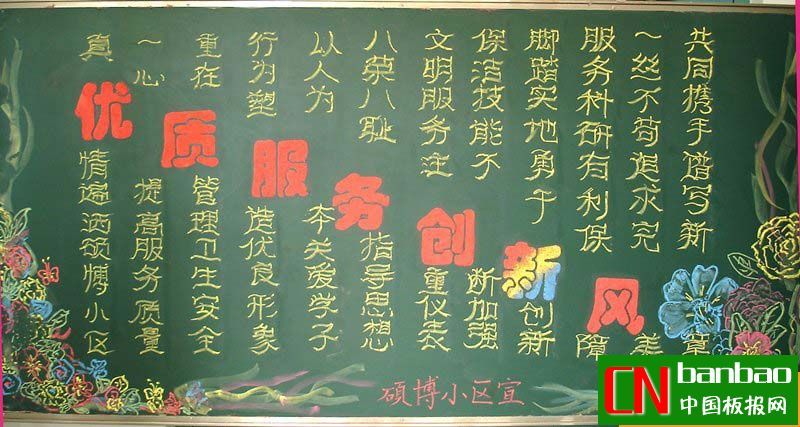 优质服务创新风
真情遍洒硕博小区
一心提高服务质量
重在管理卫生安全
行为塑造优良形象
以人为本关爱学子
八荣八耻指导思想
文明服务注重仪表
保洁技能不断加强
脚踏实地勇于创新
服务科研有利保障
一丝不苟追求完美
共同携手谱写新章
硕博小区宣
CN banbao
中国板报网